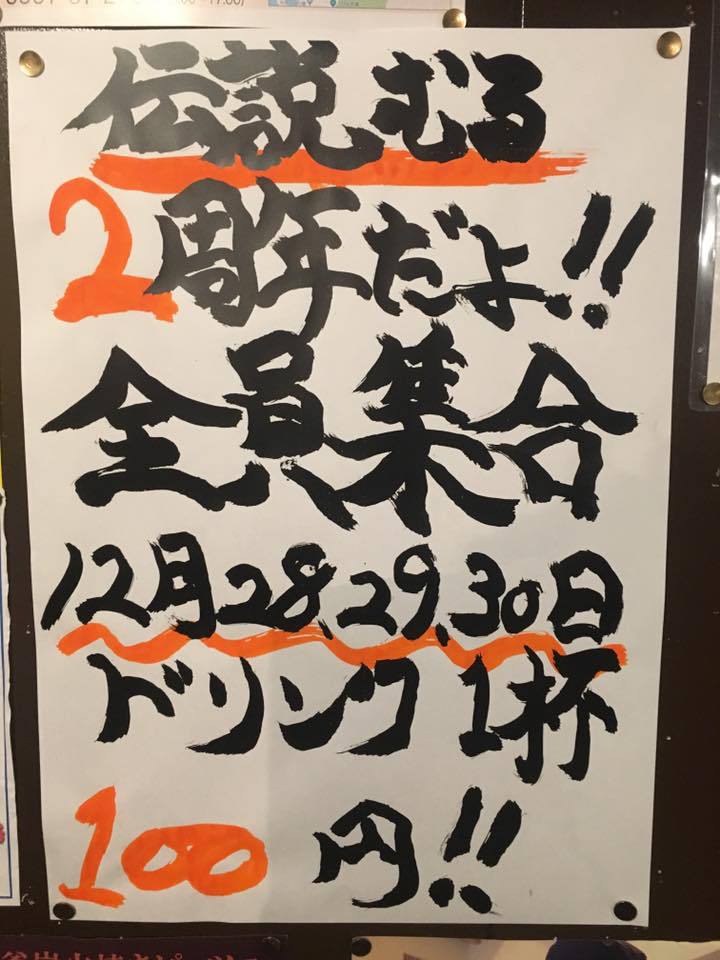 伝説むる
2周年だよ!!
全員集合
12月28、29、30日
ドリンク1杯
100円!!